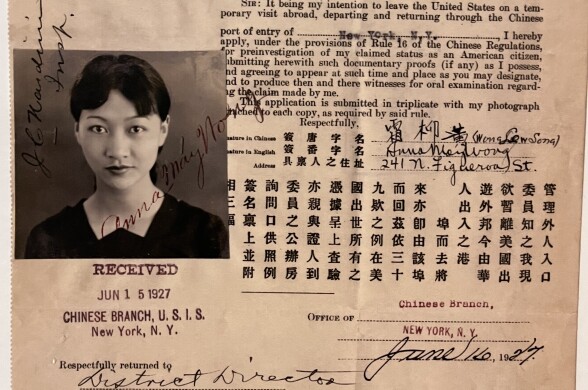 SIR: It being my intention to leave the United States on a tem-
porary visit abroad, departing and returning through the Chinese
port of entry of New York, N.Y., I hereby
apply, under the provisions of Rule 16 of the Chinese Regulations,
for preinvestigation of my claimed status as an American citizen,
submitting herewith such documentary proofs (if any) as I possess,
and agreeing to appear at such time and place as you may designate,
and to produce then and there witnesses for oral examination regard-
ing the claim made by me.
This application is submitted in triplicate with my photograph
attached to each copy, as required by said rule.
Respectfully,
Signature in Chinese 簽唐字名 霜柳黃 (Wong Lew Song)
Signature in English 簽番字名 Anna May Wong
Address 具禀人之住址 241 N. Figueroa St.
管理外人入口
委員知之我現
欲暫離美國出
遊外邦今由華
人出入之港
埠而去將
來亦卽該埠
而回茲依三十
九欵之例
國出世所有之
憑據呈上查驗
亦親與證人到
委員公辦房
詢問口供照例
簽名禀上並附
相三幅
J C Nardini
Insp.
Anna May Wong
RECEIVED
JUN 15 1927
CHINESE BRANCH, U.S.I.S.
New York, N. Y.
Chinese Branch,
OFFICE OF
NEW YORK, N. Y.
June 16, 1927
Respectfully returned to
District Director